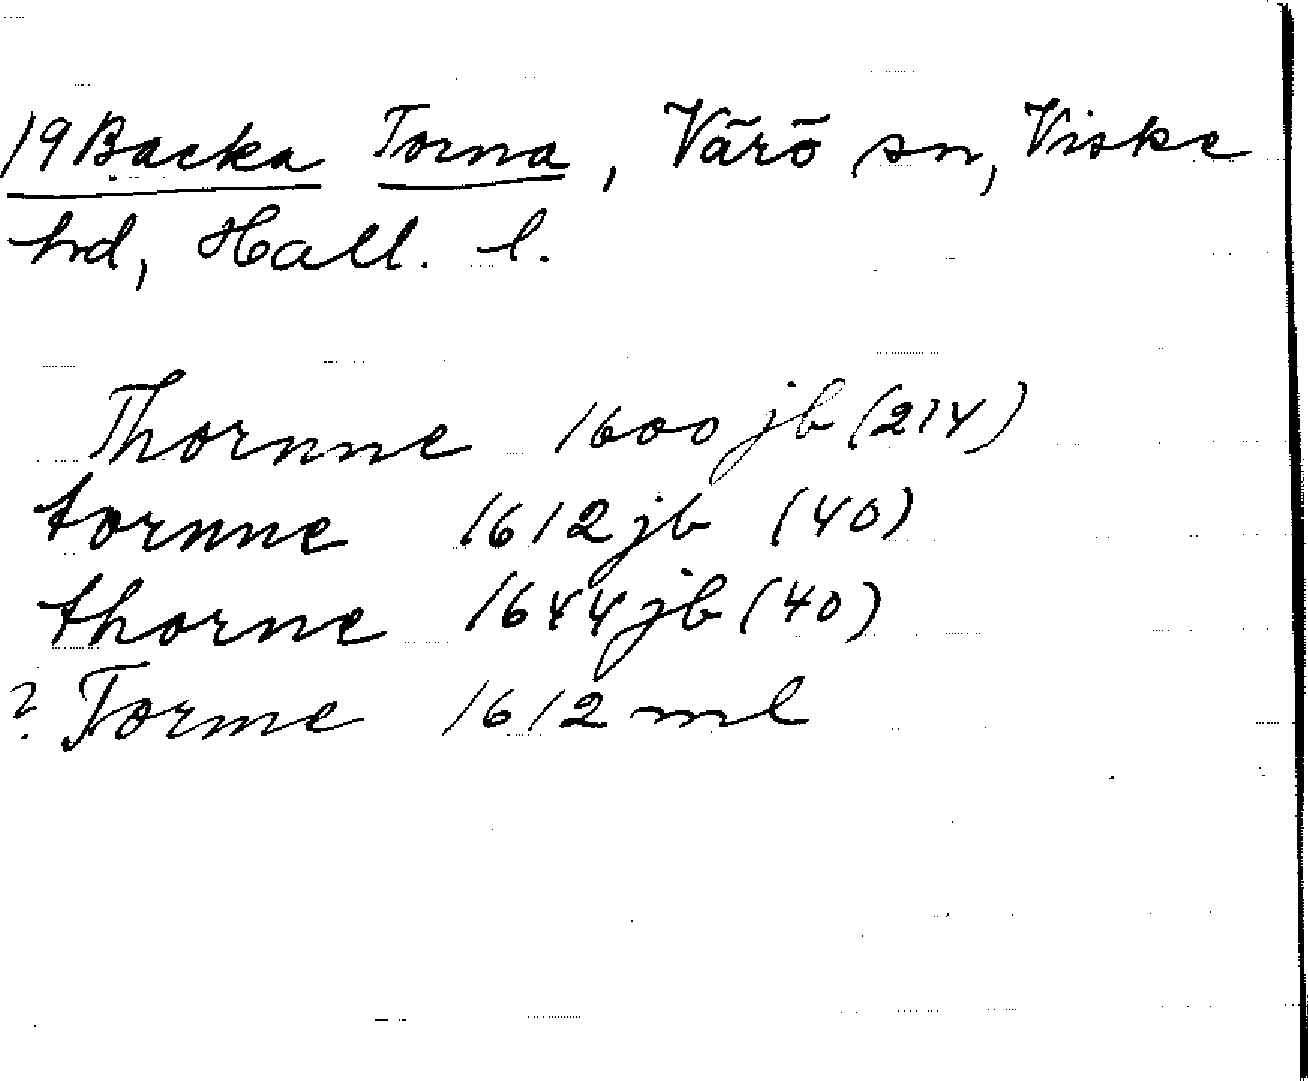 19 Backa Torna, Värö sn, Viske
hd, Hall. l.
Thornne 1600 jb (214)
tornne 1612 jb (40)
thorne 1644 jb (40)
? Torme 1612 ml